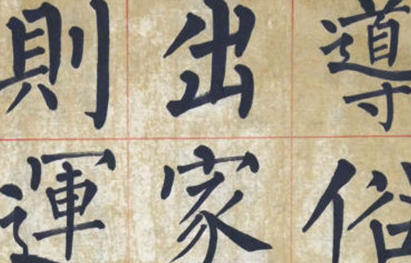 導俗
出家
則運